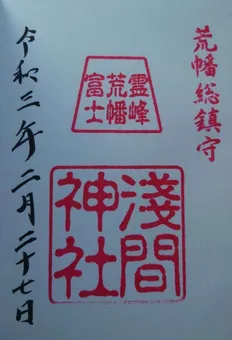 荒幡総鎮守
霊峰
荒幡
富士
淺間
神社
令和三年二月二十七日